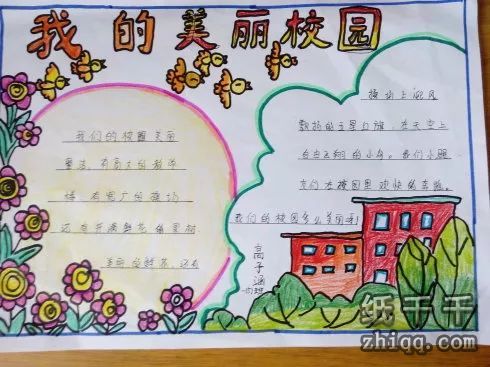 我的美丽校园
我们的校园美丽
整洁,有高大的教学
楼,有宽广的操场
还有开满鲜花的果树
美丽的鲜花,还有
操场上迎风
飘扬的五星红旗,在天空上
自由飞翔的小鸟。我们小朋
友们在校园里欢快的
我们的校园多么美丽呀!
高子涵
纸千千
zhiqq.com